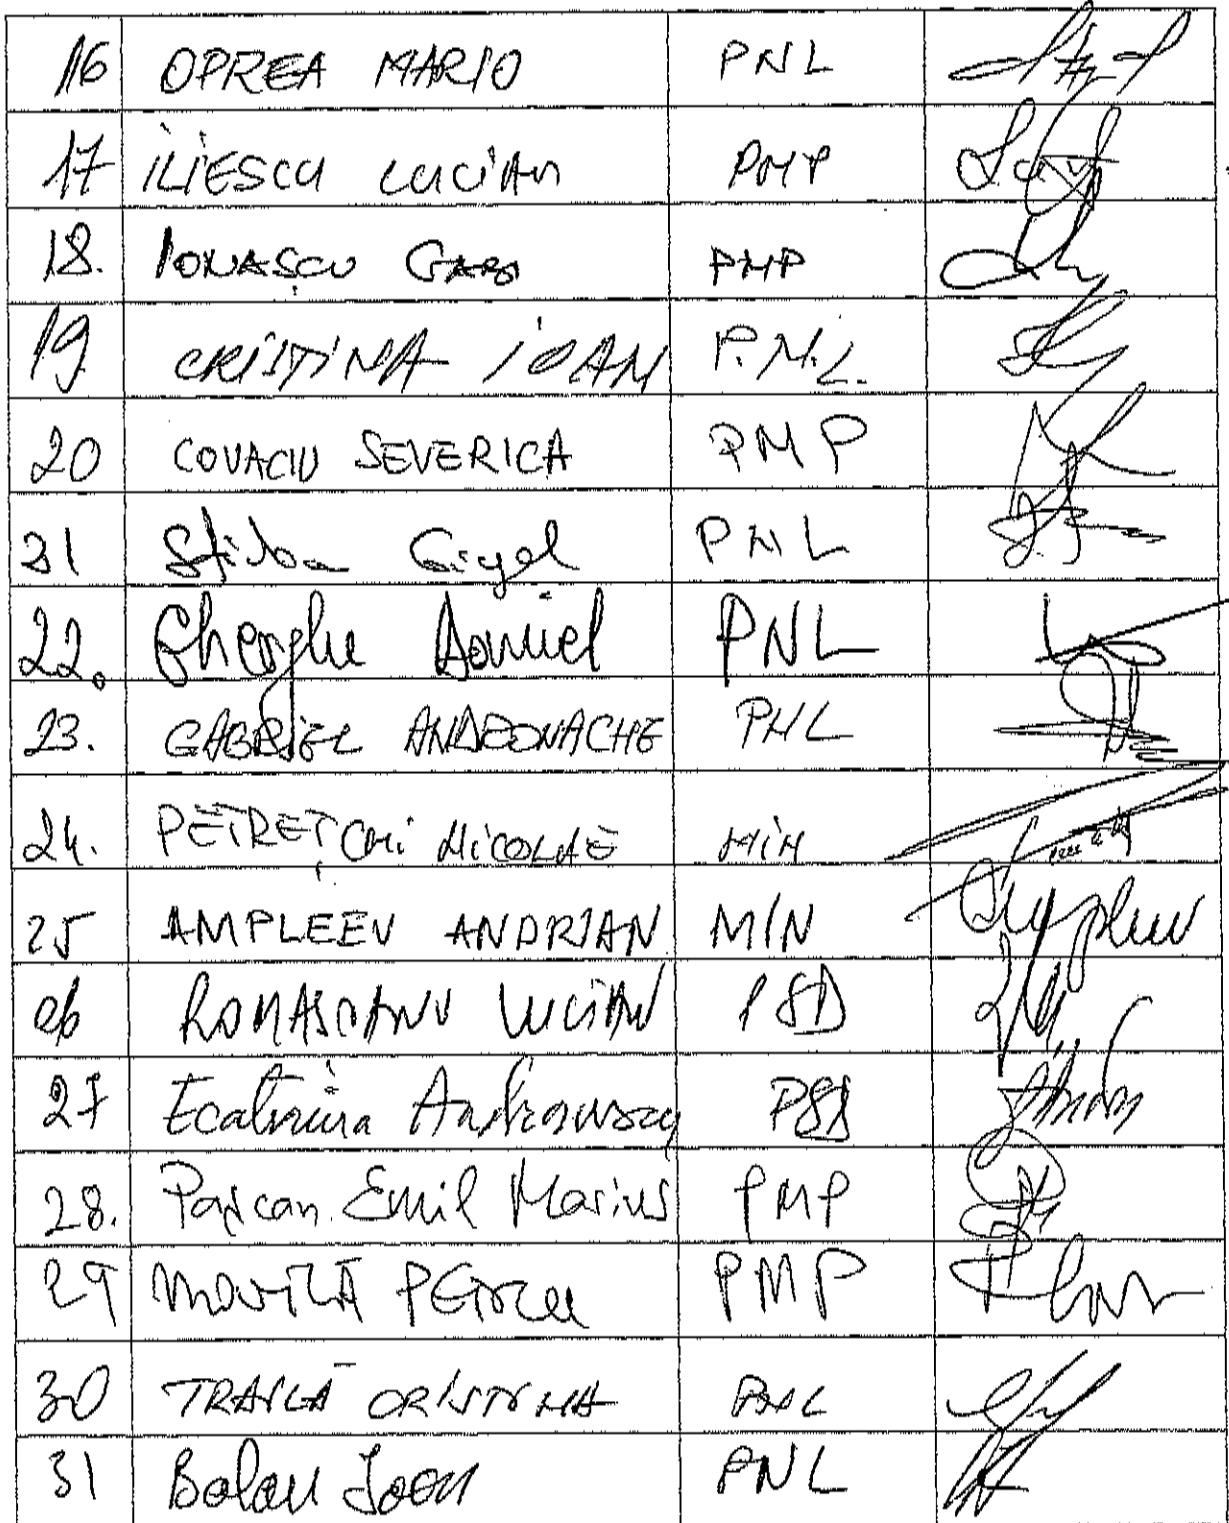 16 OPREA MARIO PNL
17 ILIESCU LUCIAN PMP
18. IONAȘCU GABI PMP
19. CRISTINA IOAN P.N.L.
20 COVACIU SEVERICA PMP
21 Știrbu Gigel PNL
22. Gheorghe Daniel PNL
23. GABRIEL ANDRONACHE PNL
24. PETREȚCHI NICOLAE MIN
25 AMPLEEV ANDRIAN MIN
26 ROMASCANU LUCIAN PSD
27 Ecaterina Andronescu PSD
28. Pașcan Emil Marius PMP
29 MOVILĂ PETRU PMP
30 TRĂILĂ CRISTINA PNL
31 Balan Ioan PNL